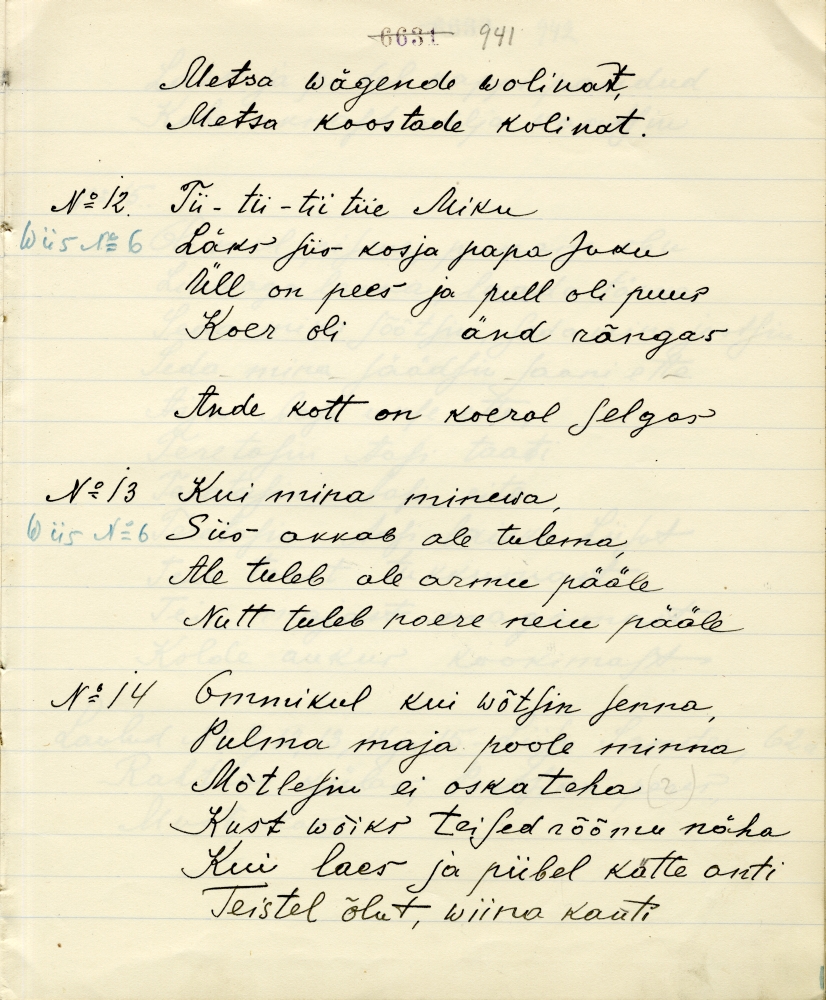 6631 941
Metsa wägende wolinat,
Metsa koostade kolinat.
№ 12. Tii-tii-tii tiie Miku
Wiis № 6 Läks siis kosja papa Juku
Üll on pees ja pull oli puus
Koer oli änd rõngas
Ande kott on koeral selgas
№ 13 Kui mina minewa,
Wiis № 6 Siis akkab ale tulema,
Ale tuleb ale armu pääle
Nutt tuleb noere neiu pääle
№ 14 Ommikul kui wõtsin senna,
Pulma maja poole minna
Mõtlesin ei oska teha (2)
Kust wõiks teised rõõmu näha
Kui laes ja piibel kätte anti
Teistel õlut, wiina kanti